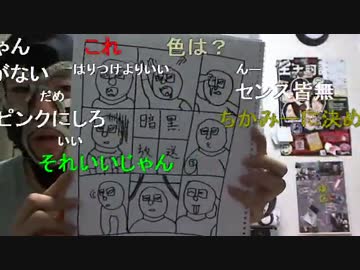 ゃん
これ
色は？
がない
はりつけよりいい
んー
だめ
センス皆無
ピンクにしろ
ちかみーに決め
いい
それいいじゃん
暗黒
放送